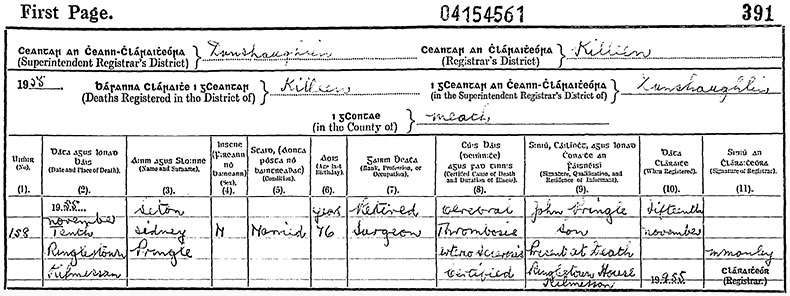 First Page. 04154561 391
Ceantar an Ċeann-Ċláraiṫeóra
(Superintendent Registrar's District) } Dunshaughlin
Ceantar an Ċláraiṫeóra
(Registrar's District) } Killeen
1955
Dáranna Cláraiṫe i gCeantar
(Deaths Registered in the District of) } Killeen
i gCeantar an Ċeann-Ċláraiṫeóra
(in the Superintendent Registrar's District of) } Dunshaughlin
i gContae
(in the County of) } Meath
Uimhir
(No.).
(1).
Dáta agus Ionad
Báis
(Date and Place of Death).
(2).
Ainm agus Sloinne
(Name and Surname).
(3).
Insene
(Fireann nó
Baineann)
(Sex).
(4).
Staid, (Aonta
Pósta nó
Baintreaċ)
(Condition).
(5).
Aois
(Age last
Birthday).
(6).
Gairm Beaṫa
(Rank, Profession, or
Occupation).
(7).
Cúis Báis
(Deiṁniṫe)
agus Fad Tinnis
(Certified Cause of Death
and Duration of Illness).
(8).
Siniú, Cáilíoċt, agus
Ionad Coṁnaiṫe an
Fáisnéisí
(Signature, Qualification, and
Residence of Informant).
(9).
Dáta
Cláraiṫe
(When Registered).
(10).
Siniú an
Ċláraiṫeóra
(Signature of Registrar).
(11).
158
1955
November
Tenth
Ringlestown
Kilmessan
Seton
Sidney
Pringle
M
Married
76
years
Retired
Surgeon
Cerebral
Thrombosis
Arterio Sclerosis
Certified
John Pringle
Son
Present at Death
Ringlestown House
Kilmessan
Fifteenth
November
1955
Cláraiṫeóir
(Registrar.)